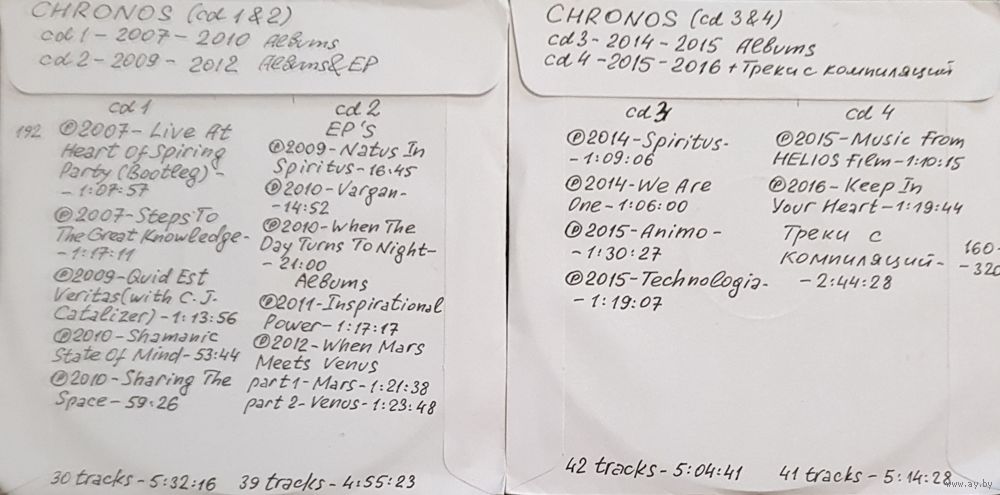 CHRONOS (cd 1&2)
cd 1 - 2007 - 2010 Albums
cd 2 - 2009 - 2012 Albums&EP
cd 1
192 ℗2007 - Live At
Heart Of Spiring
Party (Bootleg) -
- 1:07:57
℗2007 - Steps To
The Great Knowledge -
- 1:17:11
℗2009 - Quid Est
Veritas (with C.J.
Catalizer) - 1:13:56
℗2010 - Shamanic
State Of Mind - 53:44
℗2010 - Sharing The
Space - 59:26
30 tracks - 5:32:16
cd 2
EP'S
℗2009 - Natus In
Spiritus - 16:45
℗2010 - Vargan -
- 14:52
℗2010 - When The
Day Turns To Night -
- 21:00
Albums
℗2011 - Inspirational
Power - 1:17:17
℗2012 - When Mars
Meets Venus
part 1 - Mars - 1:21:38
part 2 - Venus - 1:23:48
39 tracks - 4:55:23
CHRONOS (cd 3&4)
cd 3 - 2014 - 2015 Albums
cd 4 - 2015 - 2016 + Треки с компиляций
cd 3
℗2014 - Spiritus -
- 1:09:06
℗2014 - We Are
One - 1:06:00
℗2015 - Animo -
- 1:30:27
℗2015 - Technologia -
- 1:19:07
42 tracks - 5:04:41
cd 4
℗2015 - Music From
HELIOS Film - 1:10:15
℗2016 - Keep In
Your Heart - 1:19:44
Треки с
компиляций -
- 2:44:28
160-
-320
41 tracks - 5:14:28
www.ay.by